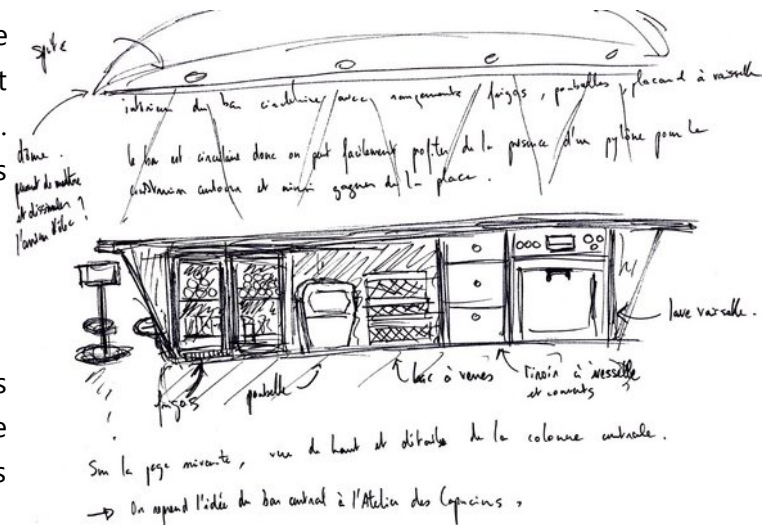 e
spots
t
.
s
intérieur du bar circulaire avec rangements frigos, poubelles, placard à vaisselle
dôme.
permet de mettre
et dissimuler ?
l'arrivée d'élec ?
le bar est circulaire donc on peut facilement profiter de la présence d'un pylône pour le
construire autour et ainsi gagner de la place.
lave vaisselle.
frigos
poubelle
bac à verres
tiroir à vaisselle
et couverts
s
e
s
Sur la page suivante, vue de haut et détails de la colonne centrale.
→ On reprend l'idée du bar central à l'Atelier des Capucins,